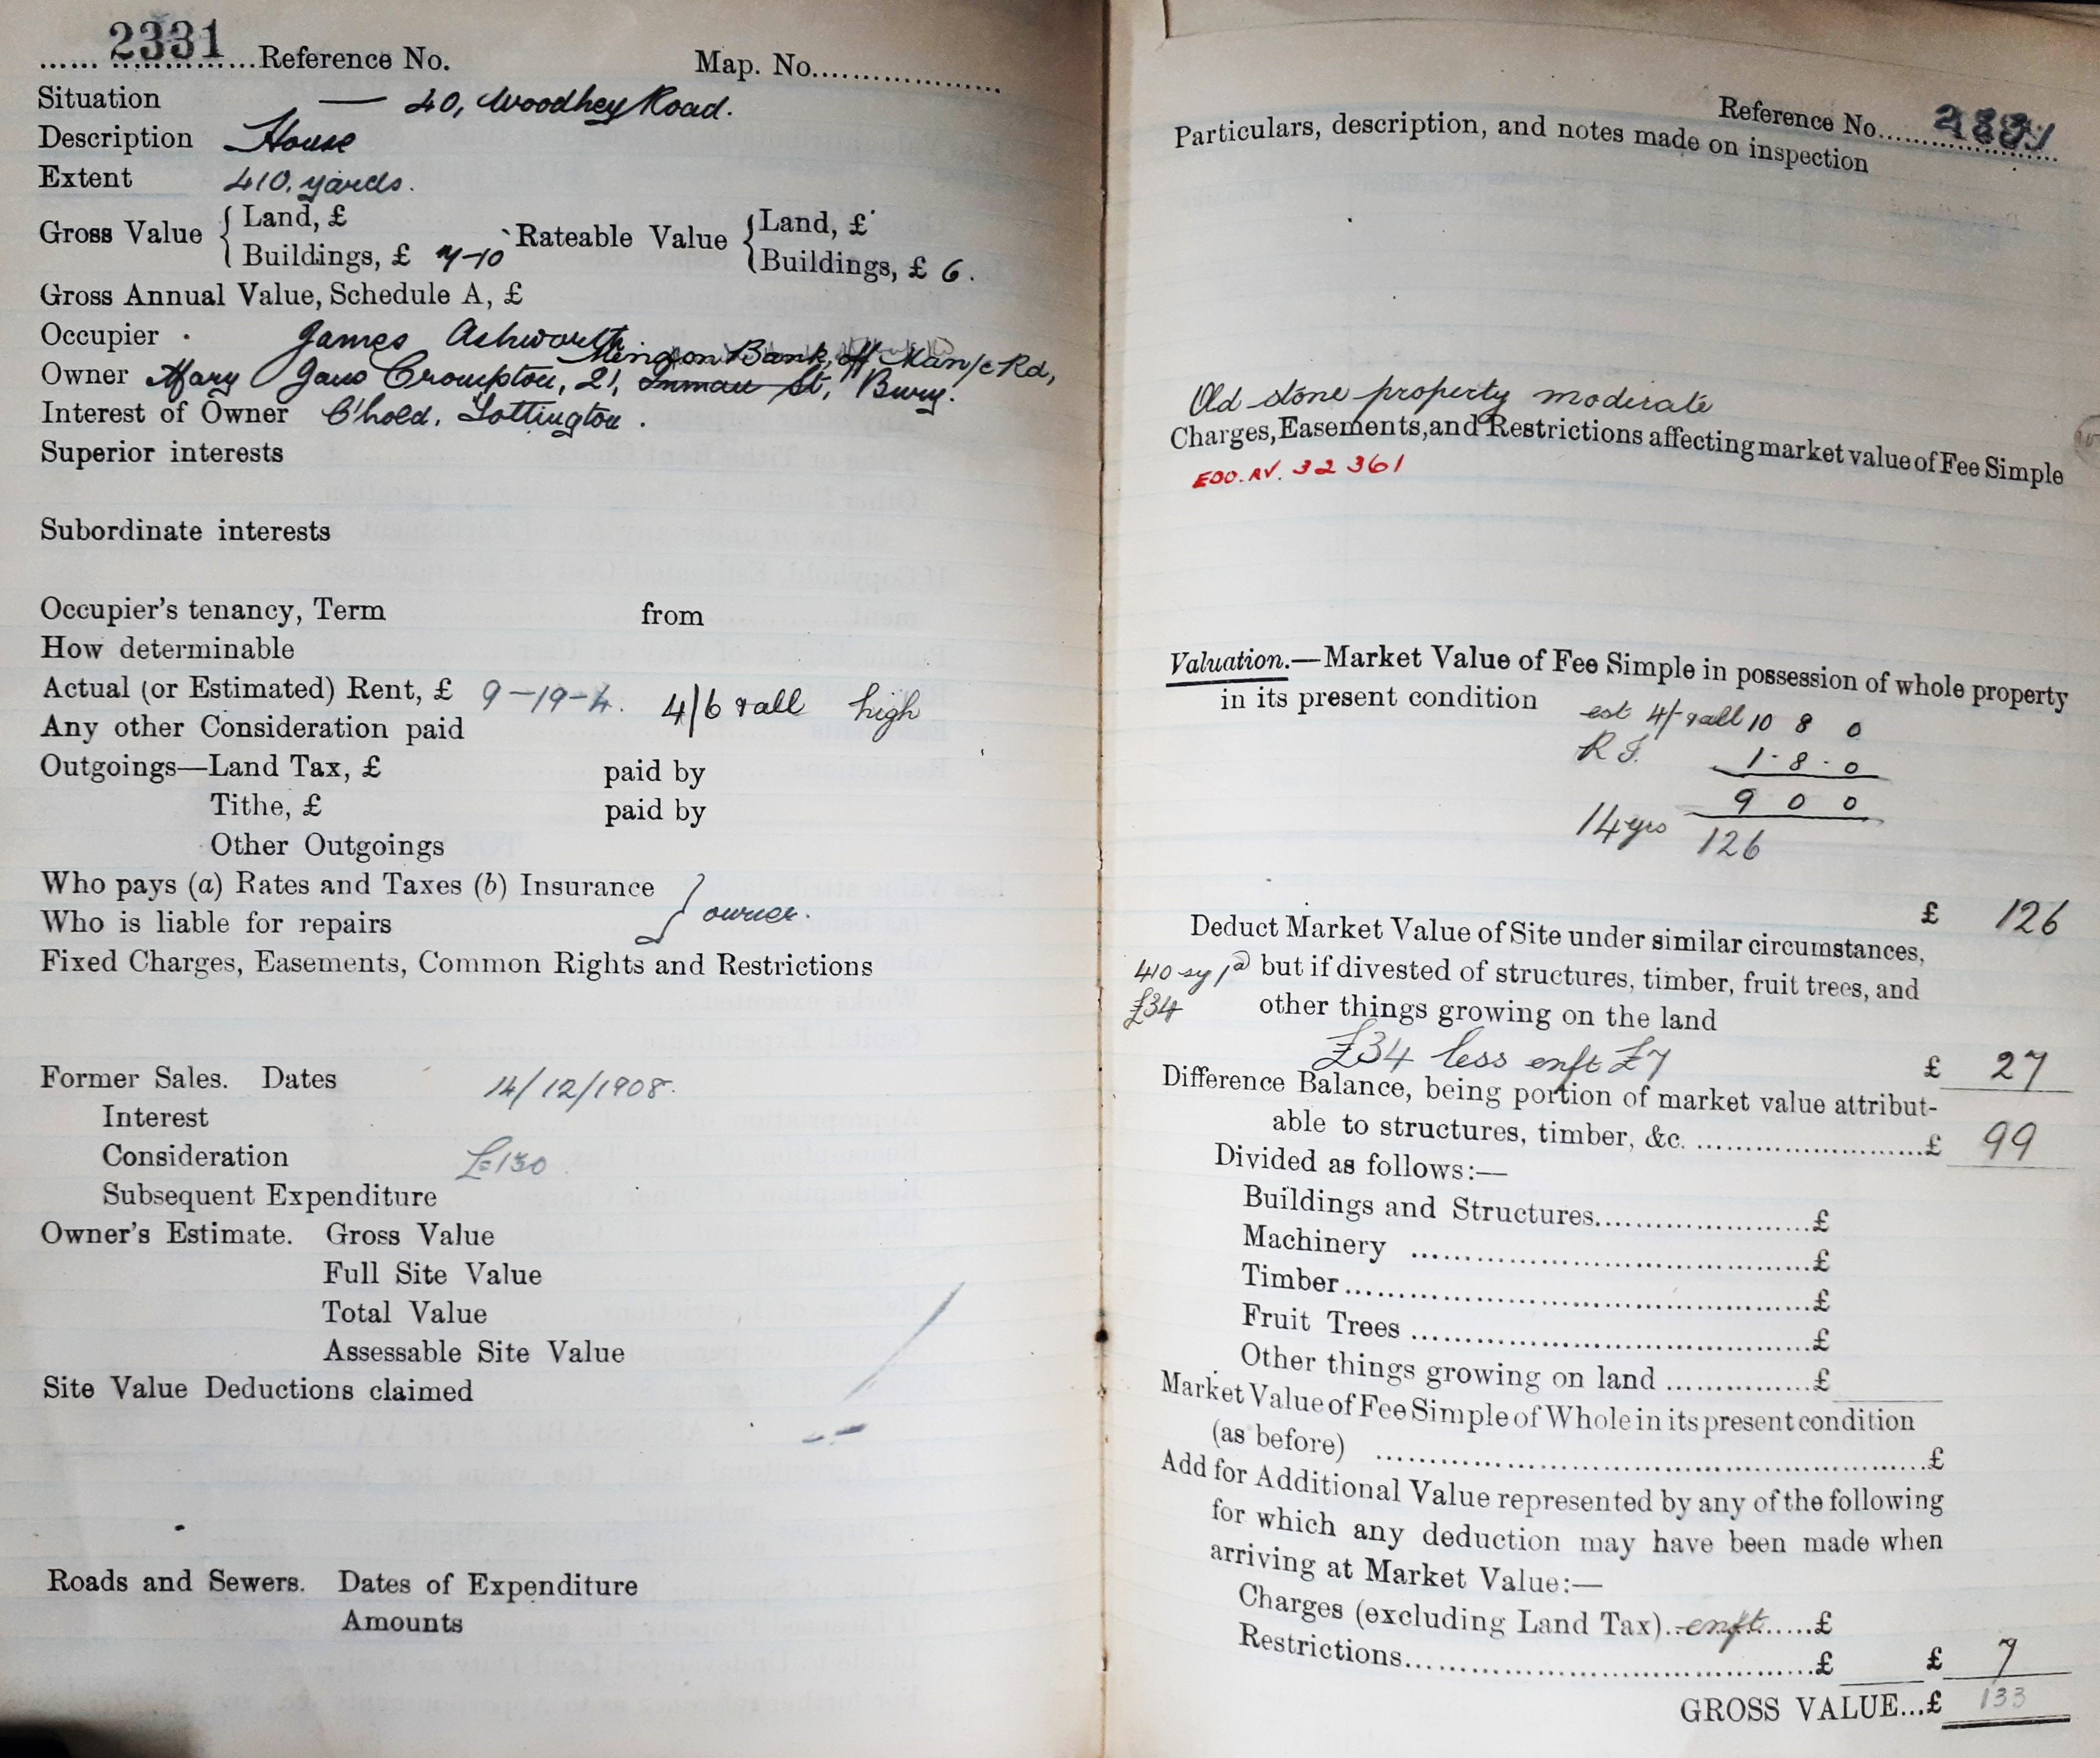 2331
...... ...............Reference No. Map. No.................
Situation — 40, Woodhey Road.
Description House
Extent 410. yards.
Gross Value { Land, £ Rateable Value { Land, £
Buildings, £ 7-10 Buildings, £ 6.
Gross Annual Value, Schedule A, £
Occupier James Ashworth
Bank, off Man/c Rd,
Owner Mary Jane Crompton, 21, Inman St, Bury.
Interest of Owner C'hold. Tottington.
Superior interests
Subordinate interests
Occupier's tenancy, Term from
How determinable
Actual (or Estimated) Rent, £ 9-19-4. 4/6 rall high
Any other Consideration paid
Outgoings—Land Tax, £ paid by
Tithe, £ paid by
Other Outgoings
Who pays (a) Rates and Taxes (b) Insurance } owner.
Who is liable for repairs
Fixed Charges, Easements, Common Rights and Restrictions
Former Sales. Dates 14/12/1908.
Interest
Consideration £130
Subsequent Expenditure
Owner's Estimate. Gross Value
Full Site Value
Total Value
Assessable Site Value
Site Value Deductions claimed
Roads and Sewers. Dates of Expenditure
Amounts
Reference No. 2331
Particulars, description, and notes made on inspection
Old stone property moderate
Charges, Easements, and Restrictions affecting market value of Fee Simple
EDO. AV. 32 361
Valuation.—Market Value of Fee Simple in possession of whole property
in its present condition
est 4/- rall 10 8 0
R T. 1-8-0
9 0 0
14 yrs 126
£ 126
Deduct Market Value of Site under similar circumstances,
410 sy 1d but if divested of structures, timber, fruit trees, and
£34 other things growing on the land
£34 less enft £7 £ 27
Difference Balance, being portion of market value attribut-
able to structures, timber, &c. ..........................£ 99
Divided as follows:—
Buildings and Structures.......................£
Machinery .........................................£
Timber...............................................£
Fruit Trees .........................................£
Other things growing on land ................£
Market Value of Fee Simple of Whole in its present condition
(as before) .......................................................£
Add for Additional Value represented by any of the following
for which any deduction may have been made when
arriving at Market Value:—
Charges (excluding Land Tax)..enft......£
Restrictions.........................................£ £ 7
GROSS VALUE...£ 133